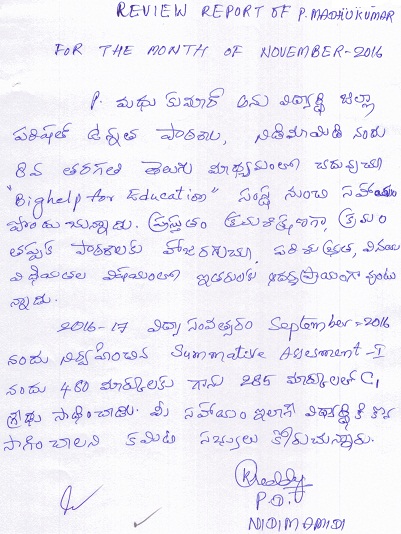 REVIEW REPORT OF P. MADHU KUMAR
FOR THE MONTH OF NOVEMBER-2016
P. మధు కుమార్ అను విద్యార్థి జిల్లా
పరిషత్ ఉన్నత పాఠశాల, నిడిమామిడి నందు
8వ తరగతి తెలుగు మాధ్యమంలో చదువుచూ
"Bighelp for Education" సంస్థ నుంచి సహాయం
పొందుచున్నాడు. ప్రస్తుతం క్రమశిక్షణగా, క్రమం
తప్పక పాఠశాలకు హాజరగుచూ, పరిశుభ్రత, వినయ
విధేయతల విషయంలో ఇతరులకు ఆదర్శప్రాయంగా వుంటు
న్నాడు.
2016-17 విద్యా సంవత్సరం September-2016
నందు నిర్వహించిన Summative Assesment-I
నందు 460 మార్కులకు గాను 285 మార్కులతో C1
గ్రేడు సాధించాడు. మీ సహాయం ఇలాగే విద్యార్థికి కొన
సాగించాలని కమిటి సభ్యులు కోరుచున్నారు.
P.O.U
NIDIMAMIDI